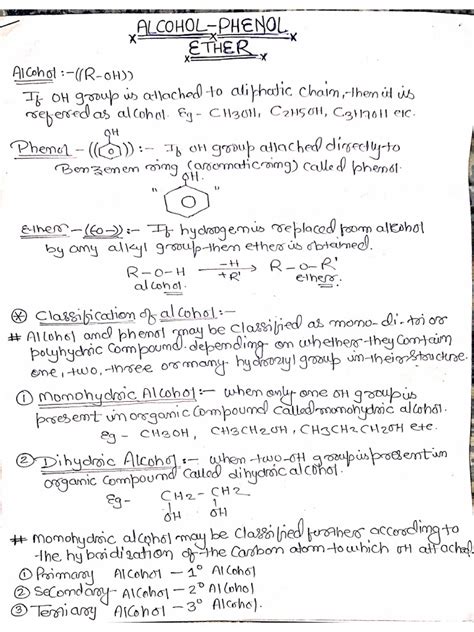 ALCOHOL-PHENOL
ETHER
Alcohol :-((R-OH))
If OH group is attached to aliphatic chain, then it is
refered as alcohol. Eg- CH3OH, C2H5OH, C3H7OH etc.
OH
Phenol - (()) :- If OH group attached directly to
Benzenen ring (aromatic ring) called phenol.
OH
" "
Ether - ((-O-)) :- If hydrogen is replaced from alcohol
by any alkyl group then ether is obtained.
R-O-H -H → +R' R-O-R'
alcohol. ether.
* Classification of alcohol :-
# Alcohol and phenol may be classified as mono-di-tri or
polyhydric compound depending on whether they contain
one, two, three or many hydroxyl group in their structure.
① Monohydric Alcohol :- when only one OH group is
present in organic compound called monohydric alcohol.
Eg - CH3OH, CH3CH2OH, CH3CH2CH2OH etc.
② Dihydric Alcohol :- when two-OH group is present in
organic compound called dihydric alcohol.
Eg- CH2-CH2
OH OH
# monohydric alcohol may be classified further according to
the hybridization of the carbon atom to which OH attached.
① Primary Alcohol - 1° Alcohol
② Secondary Alcohol - 2° Alcohol
③ Tertiary Alcohol - 3° Alcohol.